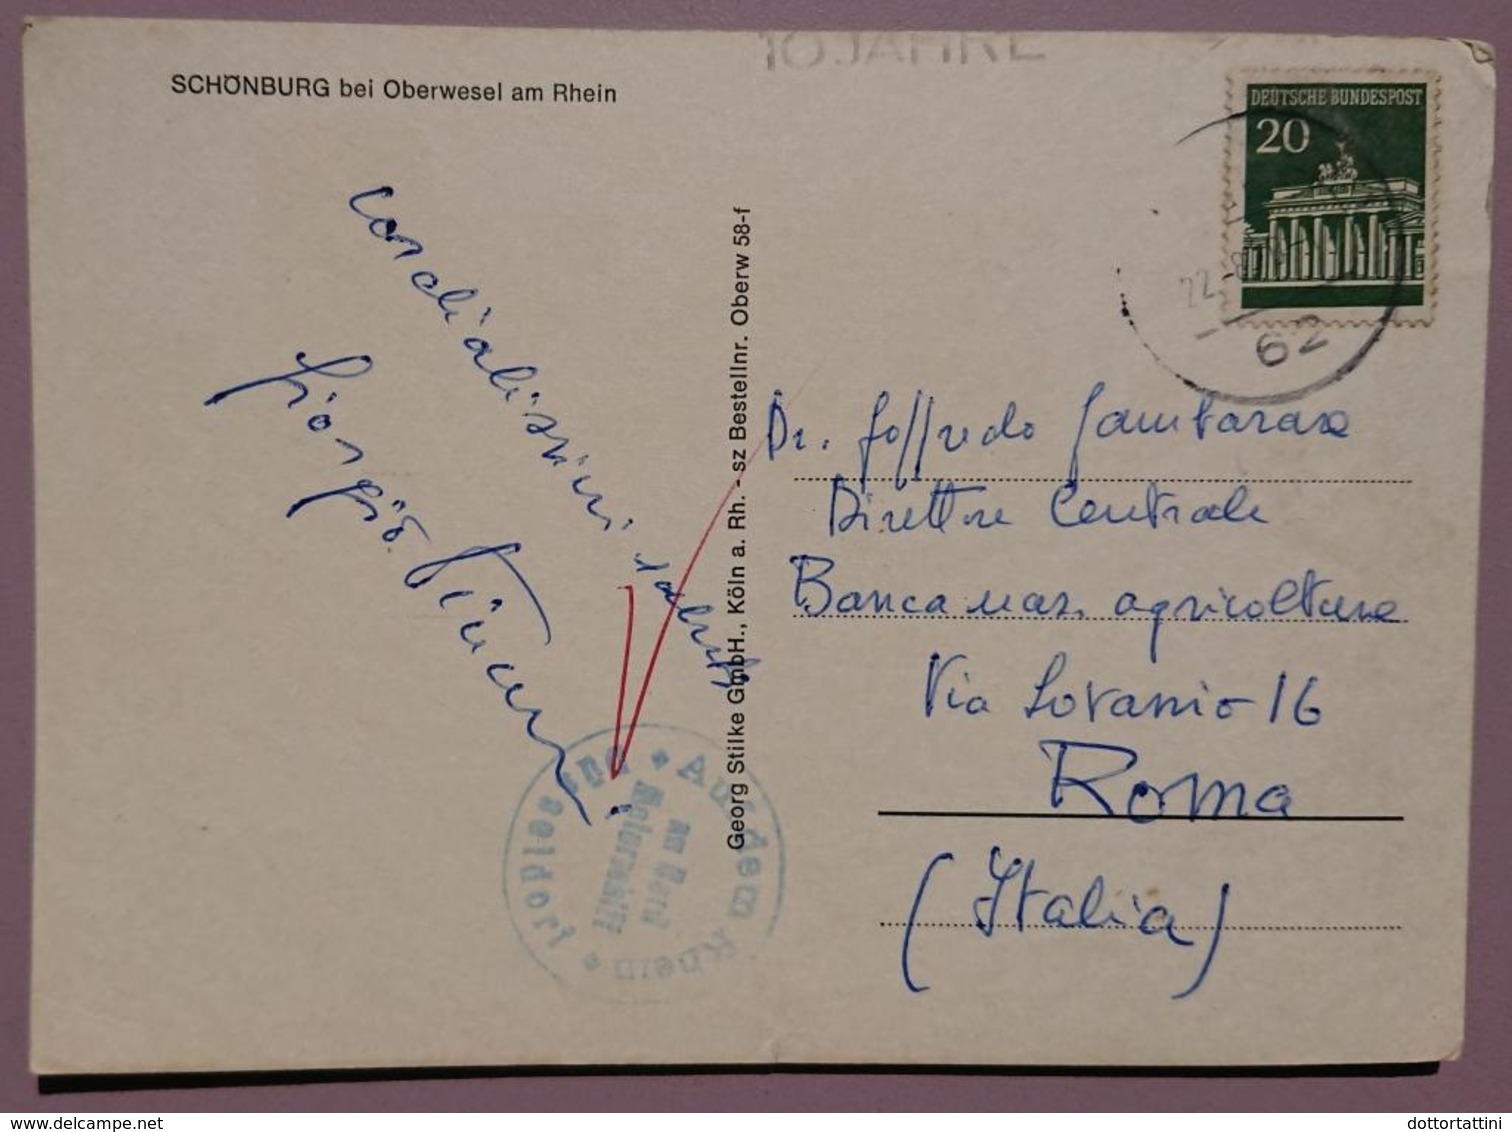 SCHÖNBURG bei Oberwesel am Rhein
10 JAHRE
DEUTSCHE BUNDESPOST
20
22.-8
62
cordialissimi saluti
Giorgio
Georg Stilke GmbH., Köln a. Rh. - sz Bestellnr. Oberw 58-f
Dr. Goffredo
Direttore Centrale
Banca naz. agricoltura
Via Lovanio 16
Roma
(Italia)
Auf dem Rhein
an Bord
Motorschiff
Düsseldorf
delcampe.net
dottortattini